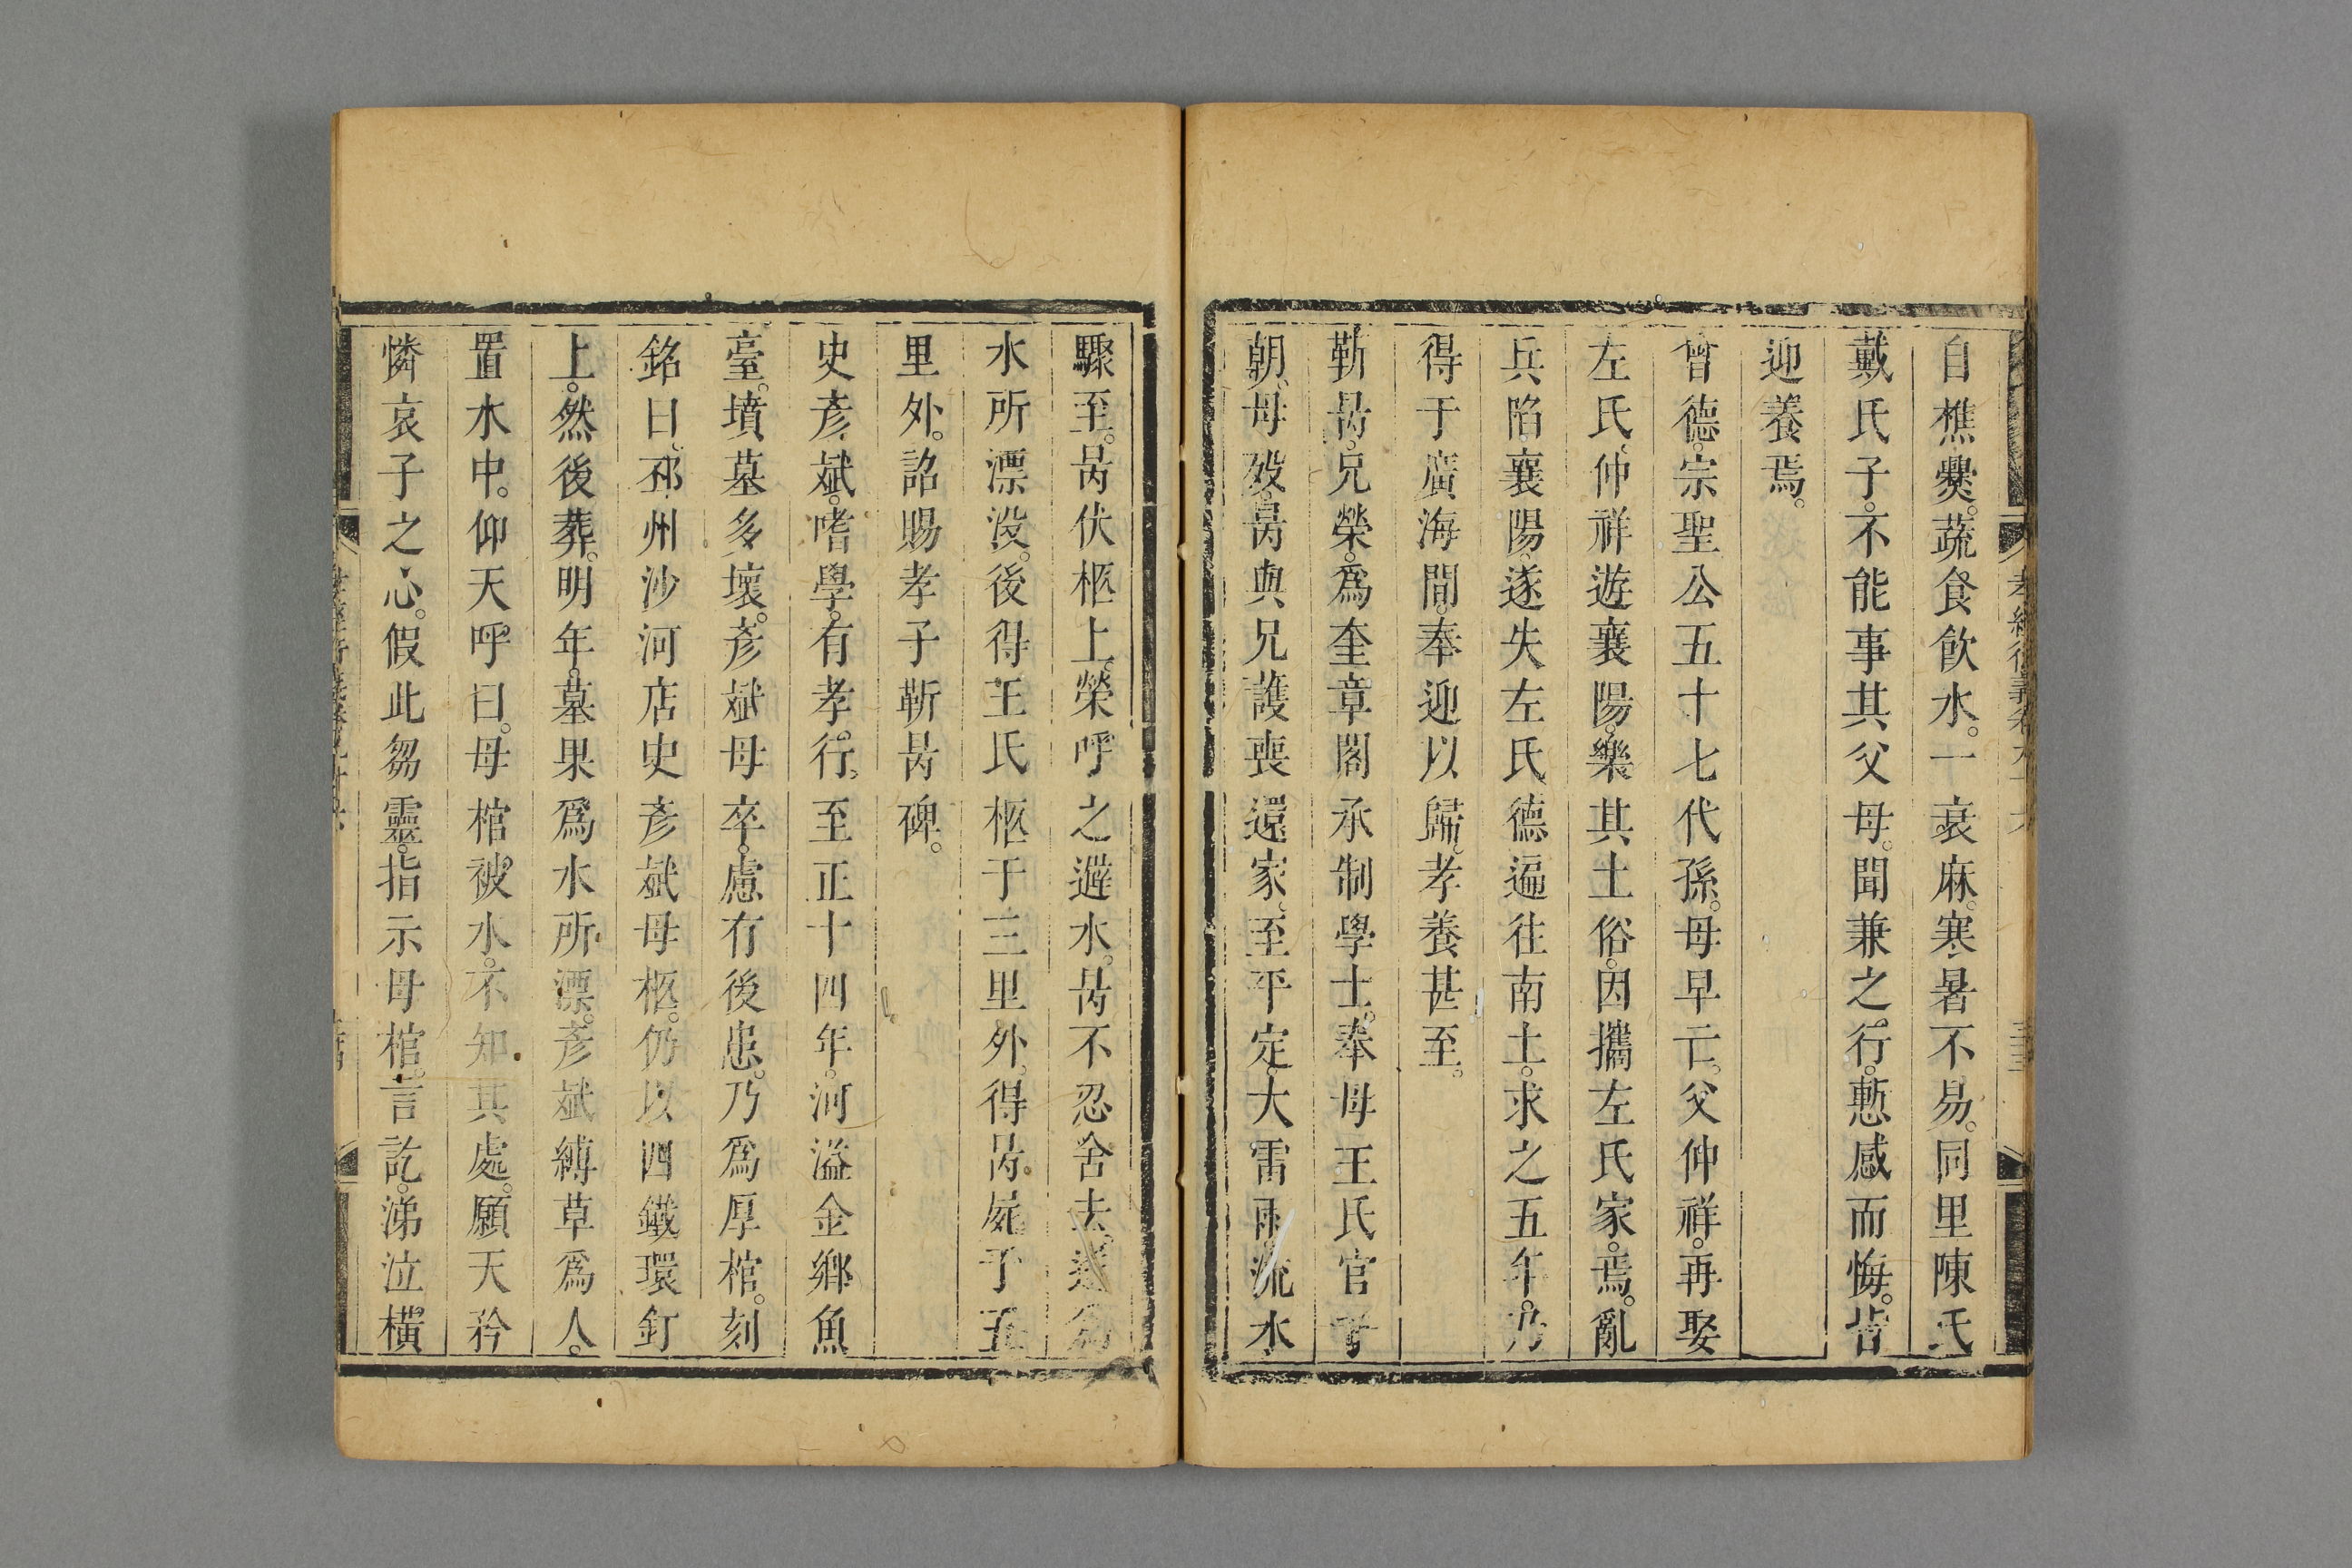 自樵爨蔬食飲水一衰麻寒暑不易同里陳氏
戴氏子不能事其父母聞兼之行慙感而悔皆
迎養焉
曾德宗聖公五十七代孫母早亡父仲祥再娶
左氏仲祥遊襄陽樂其土俗因攜左氏家焉亂
兵陷襄陽遂失左氏德遍往南土求之五年乃
得于廣海間奉迎以歸孝養甚至
靳昺兄榮為奎章閣承制學士奉母王氏官于
朝母歿昺與兄護喪還家至平定大雷雨流水
驟至昺伏柩上榮呼之避水昺不忍舍去遂為
水所漂没後得王氏柩于三里外得昺屍于五
里外詔賜孝子靳昺碑
史彥斌嗜學有孝行至正十四年河溢金鄉魚
臺墳墓多壞彥斌母卒慮有後患乃為厚棺刻
銘曰邳州沙河店史彥斌母柩仍以四鐵環釘
上然後葬明年墓果為水所漂彥斌縛草為人
置水中仰天呼曰母棺被水不知其處願天矜
憐哀子之心假此芻靈指示母棺言訖涕泣橫